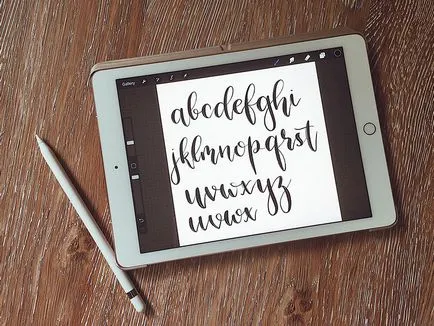 Gallery
abcdefghi
jklmnopqrst
uvwxyz
uvwx